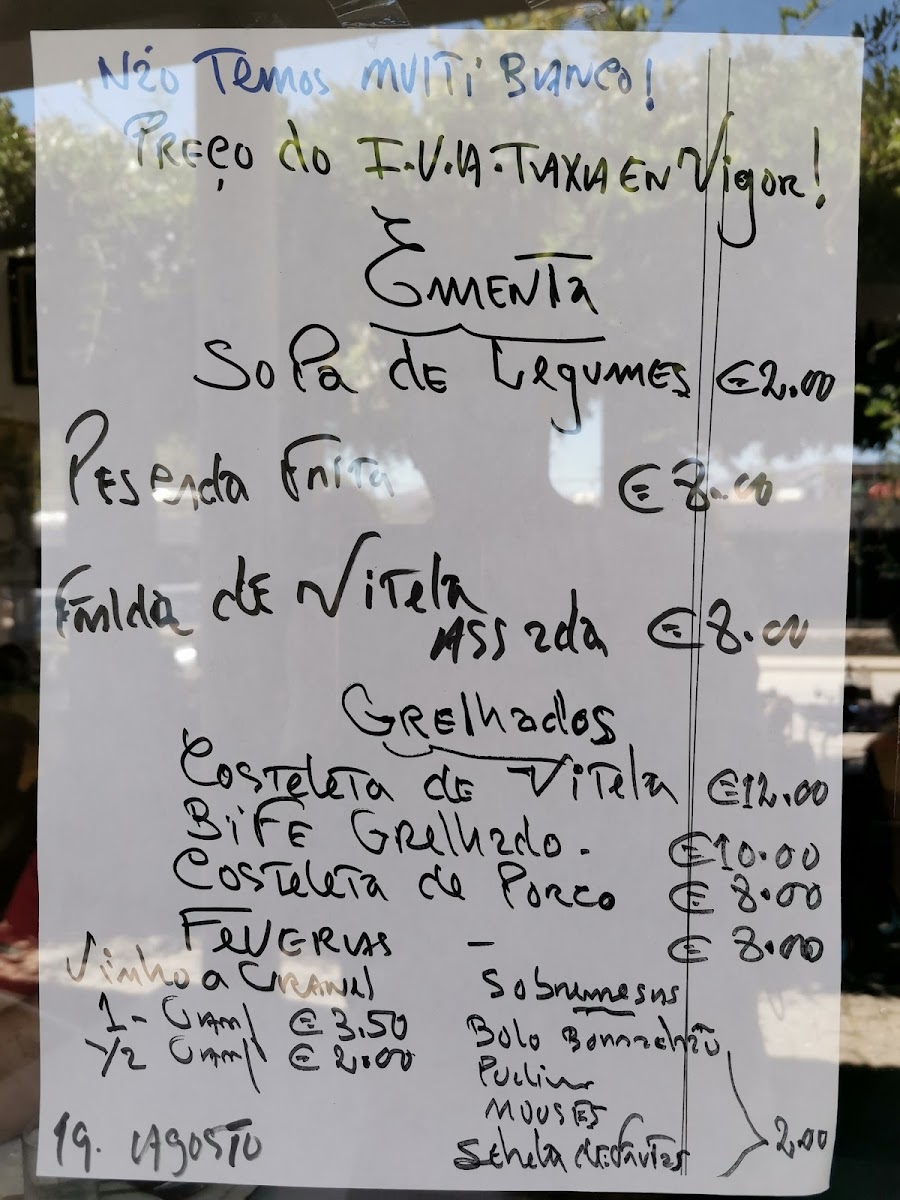 Não Temos MULTi BANCO!
PREÇO do I.V.A. TAXA EN Vigor!
EMENTA
SOPA dE LEgUMES €2.00
PESCADA FRITA €8.00
FRALDA dE VITELA
ASSADA €8.00
GRELhADOS
COSTELETA dE VITELA €12.00
BiFE GRELhADO. €10.00
COSTELETA dE PORCO €8.00
FEVERAS - €8.00
Vinho a GRANEL
1- €3.50
1/2 €2.00
SObREMESAS
Bolo BOLACHÃO
PUdim
MOUSES
SALADA dE FRUTAS
2.00
19. AGOSTO